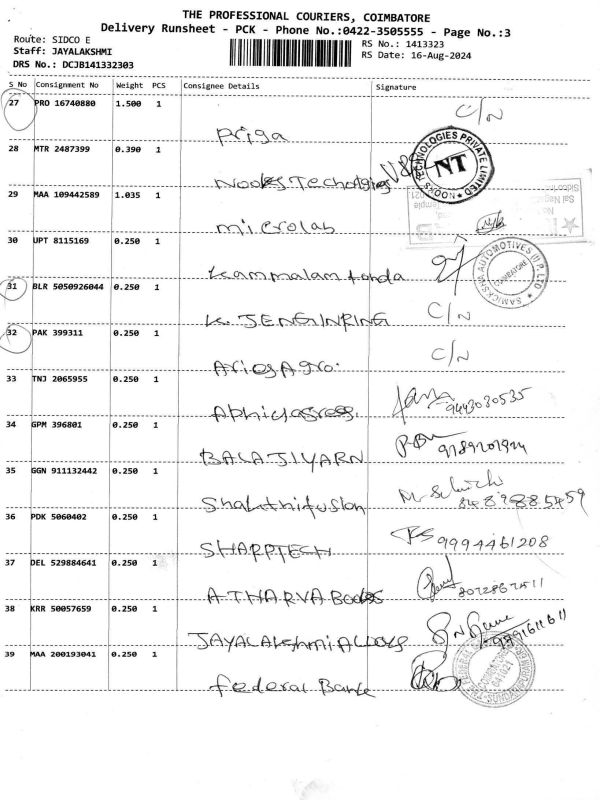 THE PROFESSIONAL COURIERS, COIMBATORE
Delivery Runsheet - PCK - Phone No.:0422-3505555 - Page No.:3
Route: SIDCO E
RS No.: 1413323
Staff: JAYALAKSHMI
RS Date: 16-Aug-2024
DRS No.: DCJB141332303
S No Consignment No Weight PCS Consignee Details Signature
27 PRO 16740880 1.500 1 Priga C/N
28 MTR 2487399 0.390 1
NOOKS TECHNOLOGIES PRIVATE LIMITED
NT
29 MAA 109442589 1.035 1 microlab
30 UPT 8115169 0.250 1 Kammalam
SAMICKSHA AUTOMOTIVES (I) P. LTD
COIMBATORE
31 BLR 5050926044 0.250 1 K. JENGINRING C/N
32 PAK 399311 0.250 1 Aries Agro. C/N
33 TNJ 2065955 0.250 1 9443030535
34 GPM 396801 0.250 1 BALAJIYARN
35 GGN 911132442 0.250 1 Shakthifusion
36 PDK 5060402 0.250 1 SHARPTECH 9994461208
37 DEL 529884641 0.250 1 ATHARVA Bodies
38 KRR 50057659 0.250 1 JAYALAKshmi ALLOYS 9791611611
39 MAA 200193041 0.250 1 federal Bank